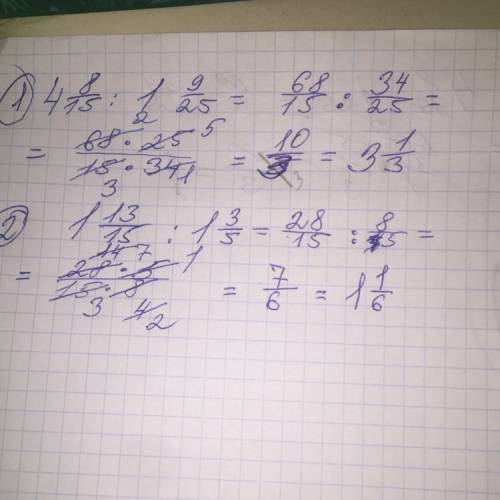 1) 4 8/15 : 1 9/25 = 68/15 : 34/25 =
= 68 · 25 / 15 · 34 = 10/3 = 3 1/3
2) 1 13/15 : 1 3/5 = 28/15 : 8/5 =
= 28 · 5 / 15 · 8 = 7/6 = 1 1/6